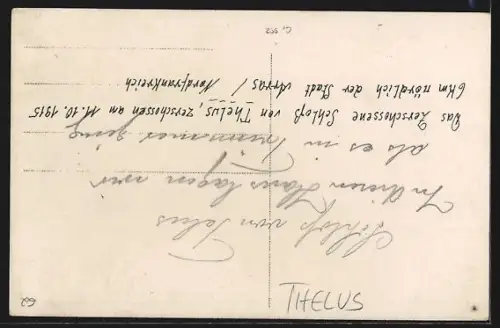 Schloß von Telus
In diesem Haus lagen wir
als es in trümmer ging
Das Zerschossene Schloß von Thelus, zerschossen am 11.10.1915
6 km nördlich der Stadt Arras / Nordfrankreich
THELUS
62